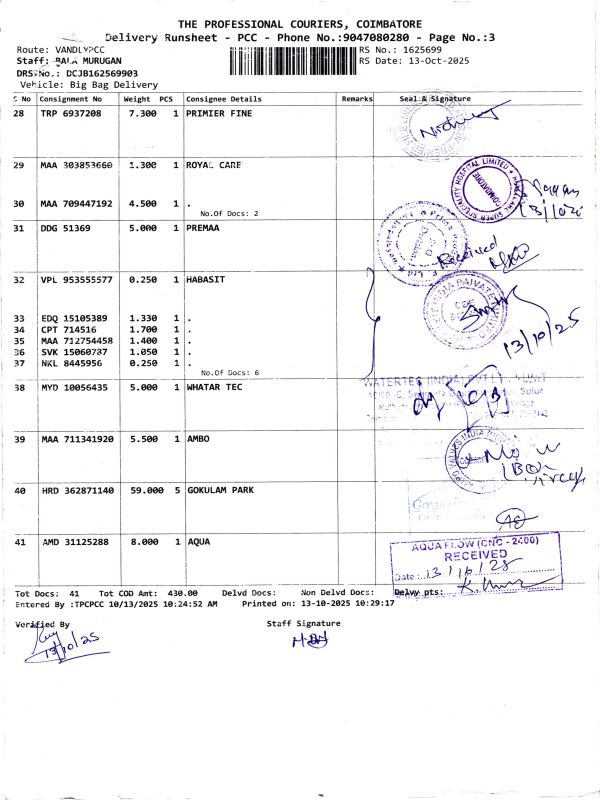 THE PROFESSIONAL COURIERS, COIMBATORE
Delivery Runsheet - PCC - Phone No.:9047080280 - Page No.:3
Route: VANDLYPCC
RS No.: 1625699
Staff: BALA MURUGAN
RS Date: 13-Oct-2025
DRS No.: DCJB162569903
Vehicle: Big Bag Delivery
S No Consignment No Weight PCS Consignee Details Remarks Seal & Signature
28 TRP 6937208 7.300 1 PRIMIER FINE
29 MAA 303853660 1.300 1 ROYAL CARE
30 MAA 709447192 4.500 1 .
No.Of Docs: 2
13/10/25
31 DDG 51369 5.000 1 PREMAA
Received
32 VPL 953555577 0.250 1 HABASIT
33 EDQ 15105389 1.330 1 .
34 CPT 714516 1.700 1 .
35 MAA 712754458 1.400 1 .
36 SVK 15060787 1.050 1 .
37 NKL 8445956 0.250 1 .
No.Of Docs: 6
13/10/25
38 MYD 10056435 5.000 1 WHATAR TEC
39 MAA 711341920 5.500 1 AMBO
40 HRD 362871140 59.000 5 GOKULAM PARK
41 AMD 31125288 8.000 1 AQUA
AQUA FLOW (CNC - 2400)
RECEIVED
Date: 13/10/25
Tot Docs: 41 Tot COD Amt: 430.00 Delvd Docs: Non Delvd Docs: Delvy pts:
Entered By :TPCPCC 10/13/2025 10:24:52 AM Printed on: 13-10-2025 10:29:17
Verified By Staff Signature
13/10/25